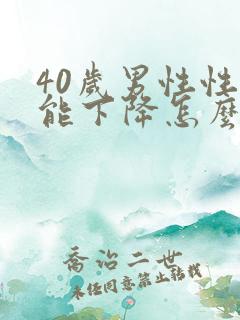 40歲男性性
能下降怎麼
喬治二世
未经同意禁止转载